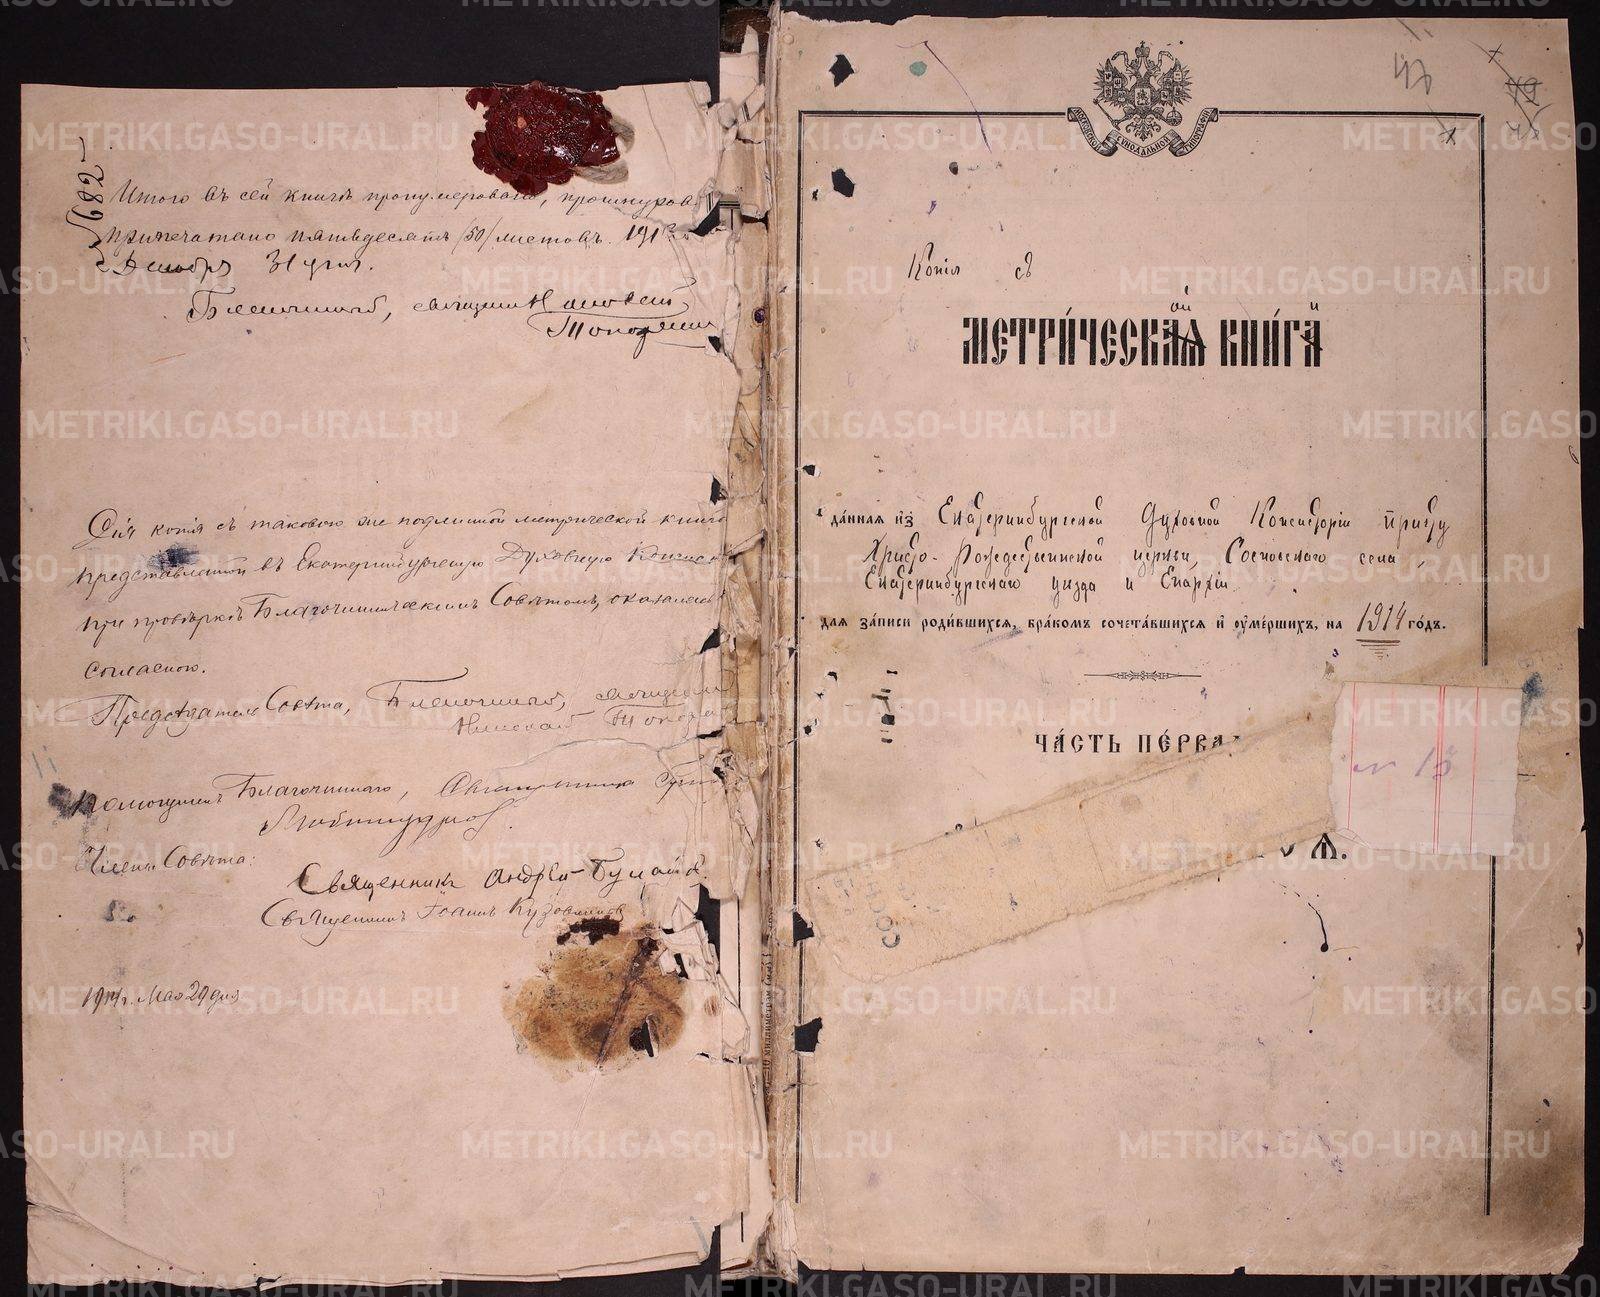 682
Итого въ сей книгѣ пронумеровано, прошнуров
припечатано пятьдесятъ /50/ листовъ. 191
Декабря 31 дня.
Благочинный, священникъ Николай
Топорк
Сія копія съ таковою же подлинной метрической книгою
представленной въ Екатеринбургскую Духовную Консис
при провѣркѣ Благочинническимъ Совѣтомъ, оказалась
согласною.
Предсѣдатель Совѣта, Благочинный, священник
Николай Топорк
Помощникъ Благочиннаго, Священникъ
Члены Совѣта:
Священникъ Андрей
Священникъ Іоаннъ Кузовников
1914 г. Мая 29 дня
МОСКОВСКОЙ СУНОДАЛЬНОЙ ТИПОГРАФІИ
Копія съ
МЕТРИ́ЧЕСКАѦ КНИ́ГА
ой и
да́ннаѧ и҆з̾ Екатеринбургской Духовной Консисторіи причту
Христо-Рождественской церкви, Сосновскаго села,
Екатеринбургскаго уѣзда и Епархіи
длѧ за́писи роди́вшихсѧ, бра́комъ сочета́вшихсѧ и҆ ᲂу҆ме́ршихъ, на 1914 го́дъ.
ЧА́СТЬ ПЕ́РВА
№ 13
Ѧ.
СОСН
METRIKI.GASO-URAL.RU